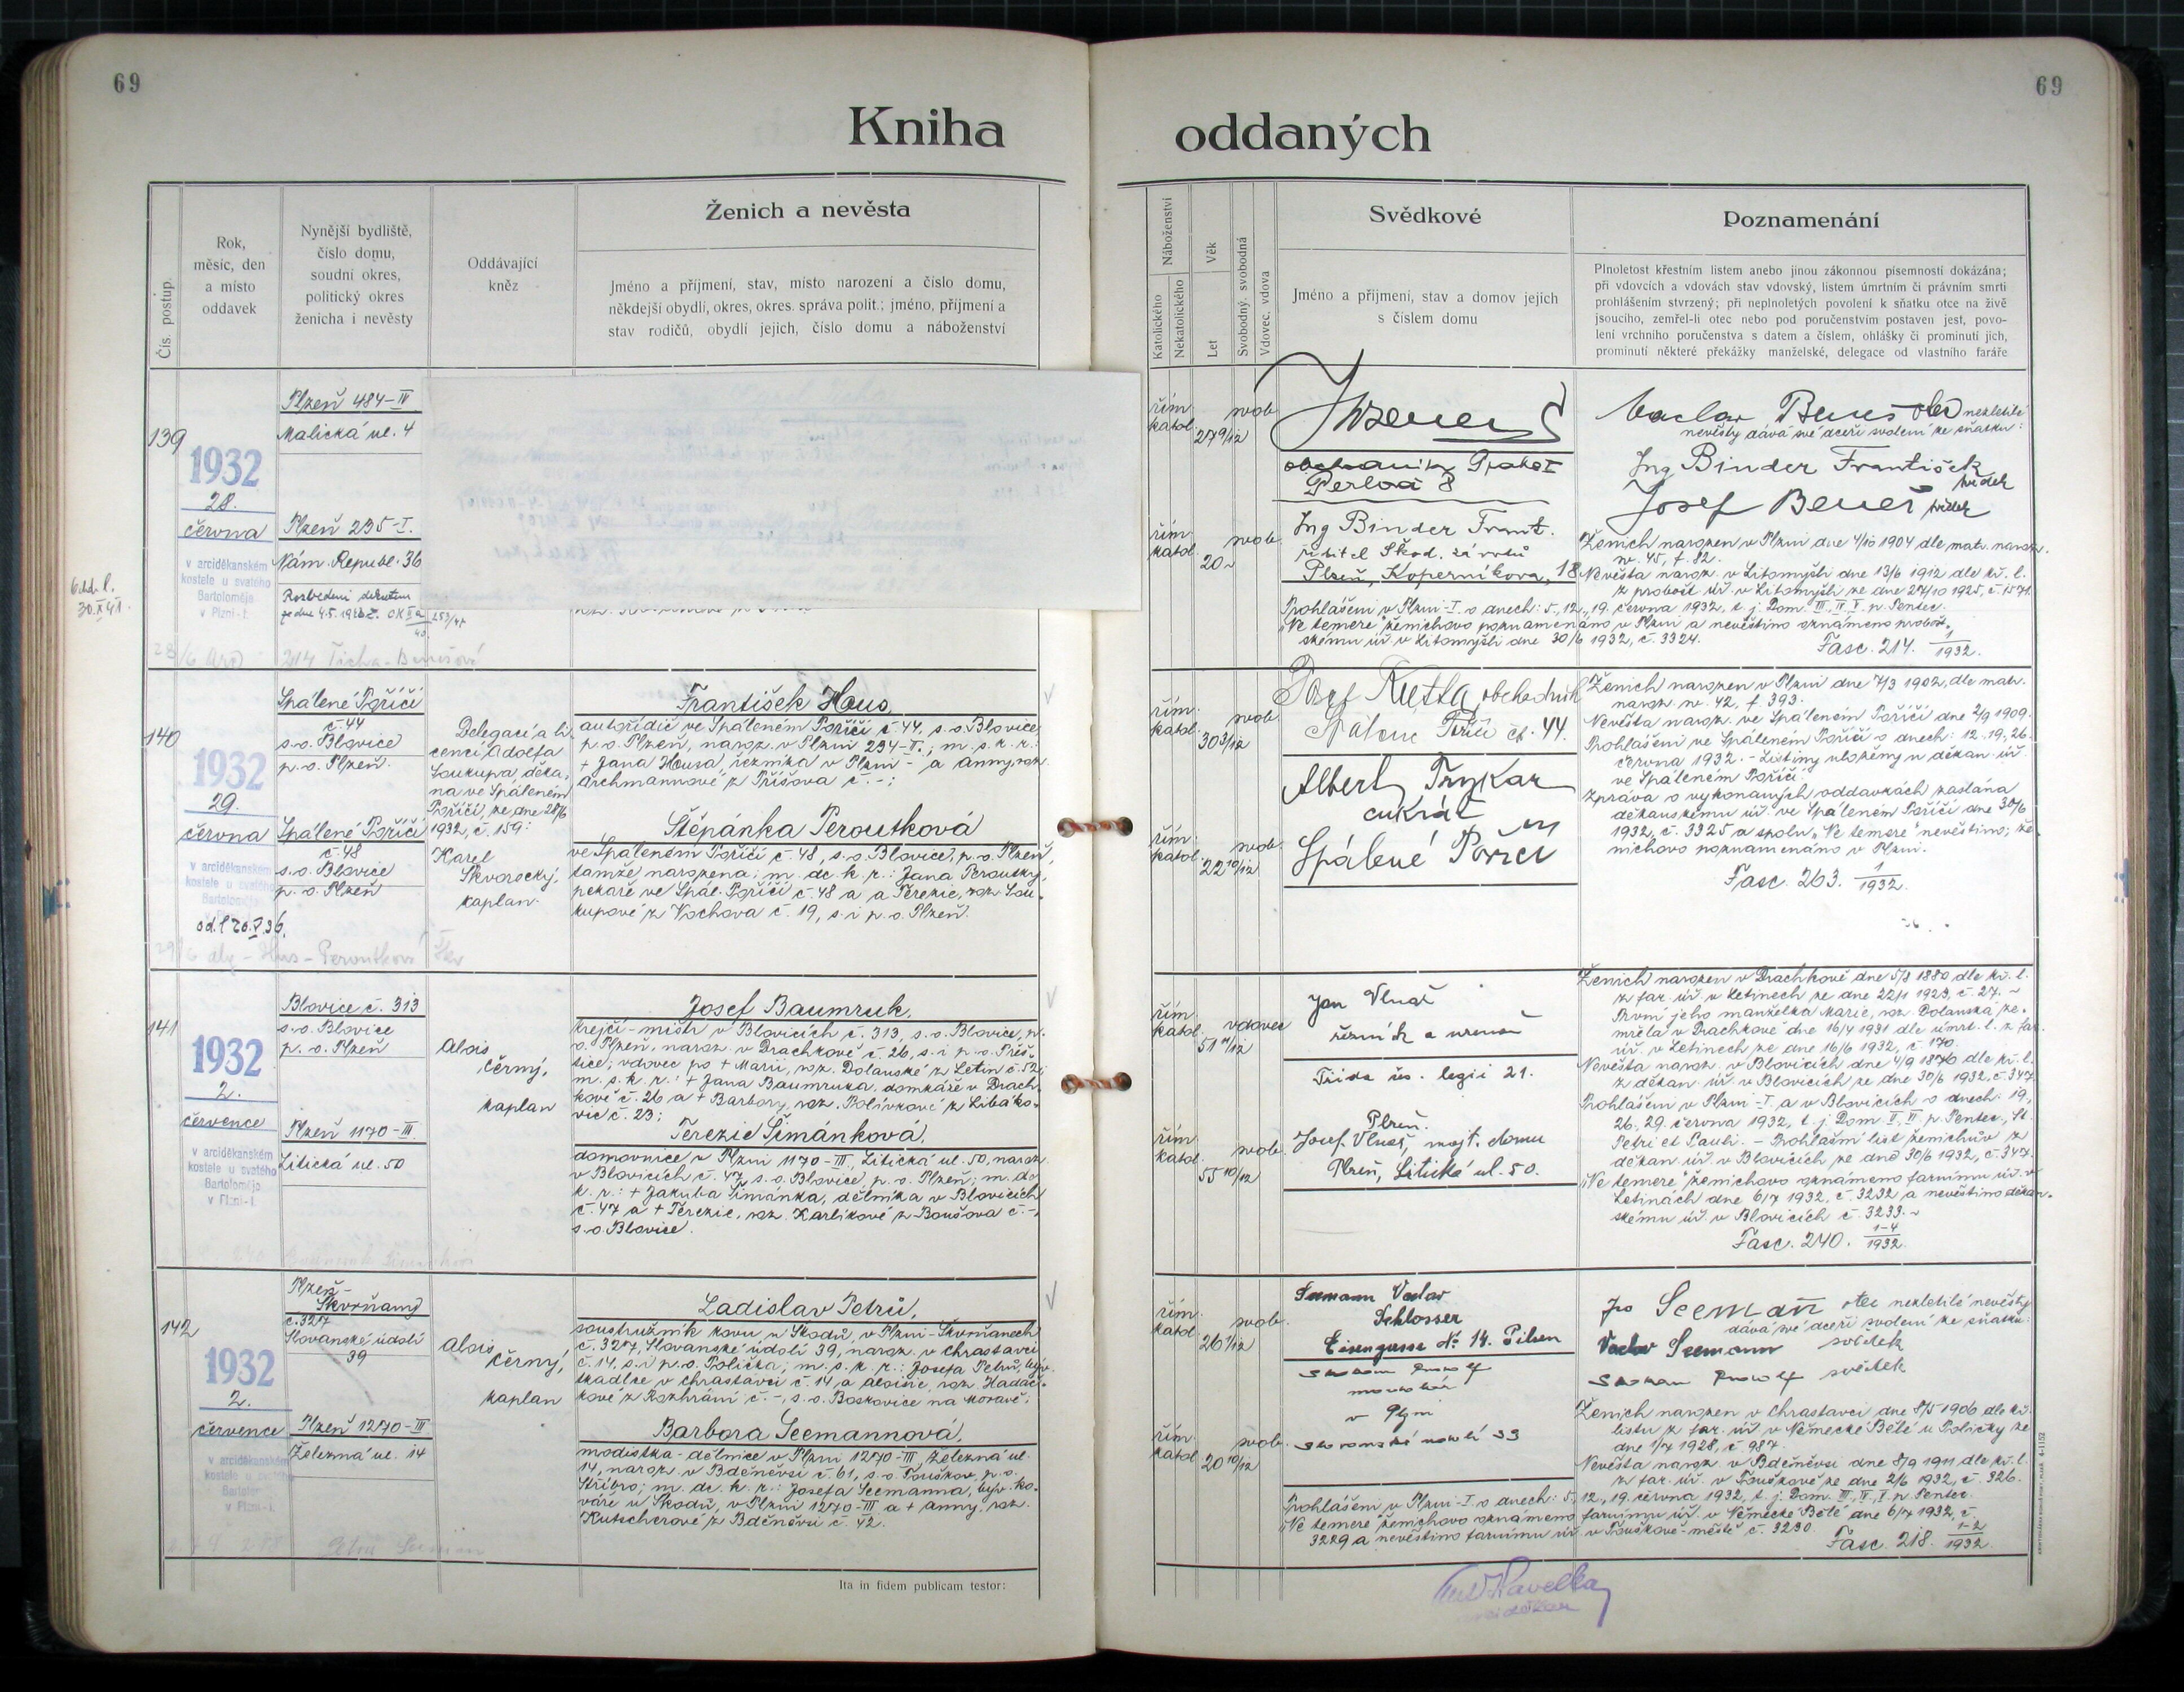 69
69
Kniha oddaných
Čís. postup.
Rok,
měsíc, den
a místo
oddavek
Nynější bydliště,
číslo domu,
soudní okres,
politický okres
ženicha i nevěsty
Oddávající
kněz
Ženich a nevěsta
Jméno a příjmení, stav, místo narození a číslo domu,
někdejší obydlí, okres, okres. správa polit.; jméno, příjmení a
stav rodičů, obydlí jejich, číslo domu a náboženství
Náboženství
Katolického
Nekatolického
Věk
Let
Svobodný, svobodná
Vdovec, vdova
Svědkové
Jméno a příjmení, stav a domov jejich
s číslem domu
Poznamenání
Plnoletost křestním listem anebo jinou zákonnou písemností dokázána;
při vdovcích a vdovách stav vdovský, listem úmrtním či právním smrti
prohlášením stvrzený; při neplnoletých povolení k sňatku otce na živě
jsoucího, zemřel-li otec nebo pod poručenstvím postaven jest, povo-
lení vrchního poručenstva s datem a číslem, ohlášky či prominutí jich,
prominutí některé překážky manželské, delegace od vlastního faráře
139
1932
28.
června
v arciděkanském
kostele u svatého
Bartoloměje
v Plzni-I.
Plzeň 484-IV
Malická ul. 4
Plzeň 235-I.
Nám. Republ. 36
Rozvedeni dekretem
ze dne 4.5.
30.X 41.
214 Tichá-Benešová
řím.
katol.
27 9/12
svob.
řím.
katol.
20
svob.
Perlová 8
Ing Binder Frant.
ředitel Škod. závodů
Plzeň, Koperníkova, 18
Václav Beneš otec nezletilé
nevěsty dává své dceři svolení ke sňatku:
Ing Binder František
svědek
Josef Beneš svědek
Ženich narozen v Plzni dne 4/10 1904 dle matr. naroz.
sv. 45, f. 82.
Nevěsta naroz. v Litomyšli dne 13/6 1912 dle kř. l.
z probošt. úř. v Litomyšli ze dne 27/10 1925, č. 1571.
Prohlášeni v Plzni-I. o dnech: 5., 12., 19. června 1932, t. j. Dom. III., IV., V. p. Pentec.
„Ne temere" ženichovo poznamenáno v Plzni a nevěstino oznámeno probošt-
skému úř. v Litomyšli dne 30/6 1932, č. 3324.
Fasc. 214. 1/1932.
140
1932
29.
června
v arciděkanském
kostele u svatého
Bartoloměje
Spálené Poříčí
č. 44
s. o. Blovice
p. o. Plzeň.
Spálené Poříčí
č. 48
s. o. Blovice
p. o. Plzeň
Delegací a li-
cencí Adolfa
Soukupa, děka-
na ve Spáleném
Poříčí, ze dne 28/6
1932, č. 159:
Karel
Škvorecký,
kaplan.
František Hous,
autořidič ve Spáleném Poříčí č. 44, s. o. Blovice,
p. o. Plzeň, naroz. v Plzni 234-II.; m. s. k. r.:
+ Jana Housa, řezníka v Plzni - a Anny, roz.
Archmannové z Příšova č. -;
Štěpánka Peroutková
ve Spáleném Poříčí č. 48, s. o. Blovice, p. o. Plzeň,
tamže narozena; m. dc. k. r.: Jana Peroutky,
pekaře ve Spál. Poříčí č. 48 a a Terezie, roz. Sou-
kupové z Vochova č. 19, s. i p. o. Plzeň.
řím.
katol.
30 3/12
svob.
řím.
katol.
22 10/12
svob.
obchodník
Spálené Poříčí čp. 44.
Albert Trykar
cukrář
Spálené Poříčí
Ženich narozen v Plzni dne 7/3 1902, dle matr.
naroz. sv. 42, f. 393.
Nevěsta naroz. ve Spáleném Poříčí dne 2/9 1909.
Prohlášeni ve Spáleném Poříčí o dnech: 12., 19., 26.
června 1932. - Listiny uloženy u děkan. úř.
ve Spáleném Poříčí.
Zpráva o vykonaných oddavkách zaslána
děkanskému úř. ve Spáleném Poříčí dne 30/6
1932, č. 3325 a spolu „Ne temere" nevěstino; že-
nichovo poznamenáno v Plzni.
Fasc. 263. 1/1932.
141
1932
2.
července
v arciděkanském
kostele u svatého
Bartoloměje
v Plzni-I.
Blovice č. 313
s. o. Blovice
p. o. Plzeň
Plzeň 1170-III.
Litická ul. 50
Alois
Černý,
kaplan
Josef Baumruk,
krejčí-mistr v Blovicích č. 313, s. o. Blovice, p.
o. Plzeň, naroz. v Drachkově č. 26, s. i p. o. Přeš-
tice; vdovec po + Marii, roz. Dolanské z Letin č. 52;
m. s. k. r.: + Jana Baumruka, domkáře v Drach-
kově č. 26 a + Barbory, roz. Polívkové z Libáko-
vic č. 23;
Terezie Šimánková,
domovnice v Plzni 1170-III., Litická ul. 50, naroz.
v Blovicích č. 47, s. o. Blovice, p. o. Plzeň; m. dc.
k. r.: + Jakuba Šimánka, dělníka v Blovicích
č. 47 a + Terezie, roz. Karlíkové z Boušova č. -,
s. o. Blovice.
řím.
katol.
51 11/12
vdovec
řím.
katol.
55 10/12
svob.
Jan Vlnař
řezník a uzenář
Třída čs. legií 21.
Plzeň.
Josef Vlnař, majt. domu
Plzeň, Litická ul. 50.
Ženich narozen v Drachkově dne 5/8 1880, dle kř. l.
z far. úř. v Letinech ze dne 22/1 1923, č. 27.
První jeho manželka Marie, roz. Dolanská ze-
mřela v Drachkově dne 16/4 1931 dle úmrt. l. z far.
úř. v Letinech ze dne 16/6 1932, č. 170.
Nevěsta naroz. v Blovicích dne 4/9 1876 dle kř. l.
z děkan. úř. v Blovicích ze dne 30/6 1932, č. 347.
Prohlášeni v Plzni-I. a v Blovicích o dnech: 19.,
26., 29. června 1932, t. j. Dom. V., VI. p. Pentec., St.
Petri et Pauli. - Prohlášní list ženichův z
děkan. úř. v Blovicích ze dne 30/6 1932, č. 347.
„Ne temere" ženichovo oznámeno farnímu úř. v
Letinách dne 6/7 1932, č. 3232 a nevěstino děkan-
skému úř. v Blovicích č. 3233.
Fasc. 240. 1-4/1932.
142
1932
2.
července
v arciděkanském
kostele u svatého
Plzeň-
Skvrňany
č. 327
Slovanské údolí
39
Plzeň 1270-III
Železná ul. 14
Alois
Černý,
kaplan
Ladislav Petrů,
soustružník kovu u Škodů, v Plzni-Skvrňanech
č. 327, Slovanské údolí 39, naroz. v Chrastavci
č. 14, s. i p. o. Polička; m. s. k. r.: Josefa Petrů, býv.
tkadlce v Chrastavci č. 14 a Aloisie, roz. Hadač-
kové z Rozhrání č. -, s. o. Boskovice na Moravě;
Barbora Seemannová,
modistka-dělnice v Plzni 1270-III, Železná ul.
14, naroz. v Bděněvsi č. 61, s. o. Touškov, p. o.
Stříbro; m. dc. k. r.: Josefa Seemanna, býv. ko-
váře u Škodů, v Plzni 1270-III a + Anny, roz.
Kutscherové z Bděněvsi č. 42.
řím.
katol.
26 1/12
svob.
řím.
katol.
20 10/12
svob.
Seemann Vaclav
Schlosser
Eisengasse No 14. Pilsen
v Plzni
Slovanské údolí 39
Seemann otec nezletilé nevěsty
dává své dceři svolení ke sňatku:
Vaclav Seemann svědek
svědek
Ženich narozen v Chrastavci dne 8/5 1906 dle kř.
listu z far. úř. v Německé Bělé u Poličky ze
dne 1/7 1928, č. 987.
Nevěsta naroz. v Bděněvsi dne 8/9 1911 dle kř. l.
z far. úř. v Touškově ze dne 2/6 1932, č. 326.
Prohlášeni v Plzni-I. o dnech: 5., 12., 19. června 1932, t. j. Dom. III., IV., V. p. Pentec.
„Ne temere" ženichovo oznámeno farnímu úř. v Německé Bělé dne 6/7 1932, č.
3229 a nevěstino farnímu úř. v Touškově-městě č. 3230.
Fasc. 218. 1-2/1932.
Ita in fidem publicam testor: